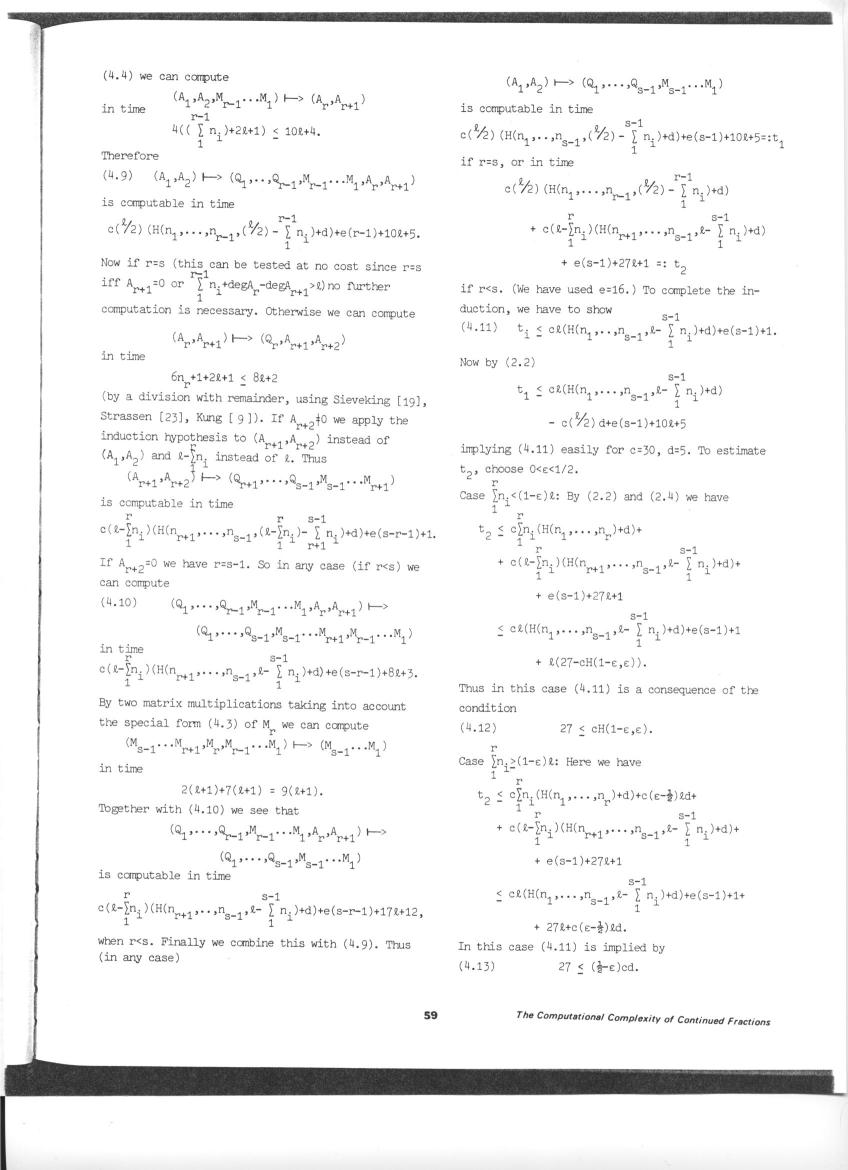 (4.4) we can compute
(A₁,A₂,Mᵣ₋₁...M₁) ↦ (Aᵣ,Aᵣ₊₁)
in time
r-1
4(( ∑ nᵢ)+2ℓ+1) ≤ 10ℓ+4.
1
Therefore
(4.9) (A₁,A₂) ↦ (Q₁,..,Qᵣ₋₁,Mᵣ₋₁...M₁,Aᵣ,Aᵣ₊₁)
is computable in time
r-1
c(ℓ/2)(H(n₁,...,nᵣ₋₁,(ℓ/2)- ∑ nᵢ)+d)+e(r-1)+10ℓ+5.
1
Now if r=s (this can be tested at no cost since r=s
r-1
iff Aᵣ₊₁=0 or ∑ nᵢ+degAᵣ-degAᵣ₊₁>ℓ) no further
1
computation is necessary. Otherwise we can compute
(Aᵣ,Aᵣ₊₁) ↦ (Qᵣ,Aᵣ₊₁,Aᵣ₊₂)
in time
6nᵣ+1+2ℓ+1 ≤ 8ℓ+2
(by a division with remainder, using Sieveking [19],
Strassen [23], Kung [ 9 ]). If Aᵣ₊₂≠0 we apply the
induction hypothesis to (Aᵣ₊₁,Aᵣ₊₂) instead of
r
(A₁,A₂) and ℓ-∑nᵢ instead of ℓ. Thus
1
(Aᵣ₊₁,Aᵣ₊₂) ↦ (Qᵣ₊₁,...,Qₛ₋₁,Mₛ₋₁...Mᵣ₊₁)
is computable in time
r r s-1
c(ℓ-∑nᵢ)(H(nᵣ₊₁,...,nₛ₋₁,(ℓ-∑nᵢ)- ∑ nᵢ)+d)+e(s-r-1)+1.
1 1 r+1
If Aᵣ₊₂=0 we have r=s-1. So in any case (if r<s) we
can compute
(4.10) (Q₁,...,Qᵣ₋₁,Mᵣ₋₁...M₁,Aᵣ,Aᵣ₊₁) ↦
(Q₁,...,Qₛ₋₁,Mₛ₋₁...Mᵣ₊₁,Mᵣ₋₁...M₁)
in time
r s-1
c(ℓ-∑nᵢ)(H(nᵣ₊₁,...,nₛ₋₁,ℓ- ∑ nᵢ)+d)+e(s-r-1)+8ℓ+3.
1 1
By two matrix multiplications taking into account
the special form (4.3) of Mᵣ we can compute
(Mₛ₋₁...Mᵣ₊₁,Mᵣ,Mᵣ₋₁...M₁) ↦ (Mₛ₋₁...M₁)
in time
2(ℓ+1)+7(ℓ+1) = 9(ℓ+1).
Together with (4.10) we see that
(Q₁,...,Qᵣ₋₁,Mᵣ₋₁...M₁,Aᵣ,Aᵣ₊₁) ↦
(Q₁,...,Qₛ₋₁,Mₛ₋₁...M₁)
is computable in time
r s-1
c(ℓ-∑nᵢ)(H(nᵣ₊₁,..,nₛ₋₁,ℓ- ∑ nᵢ)+d)+e(s-r-1)+17ℓ+12,
1 1
when r<s. Finally we combine this with (4.9). Thus
(in any case)
(A₁,A₂) ↦ (Q₁,...,Qₛ₋₁,Mₛ₋₁...M₁)
is computable in time
s-1
c(ℓ/2)(H(n₁,..,nₛ₋₁,(ℓ/2)- ∑ nᵢ)+d)+e(s-1)+10ℓ+5=:t₁
1
if r=s, or in time
r-1
c(ℓ/2)(H(n₁,...,nᵣ₋₁,(ℓ/2)- ∑ nᵢ)+d)
1
r s-1
+ c(ℓ-∑nᵢ)(H(nᵣ₊₁,...,nₛ₋₁,ℓ- ∑ nᵢ)+d)
1 1
+ e(s-1)+27ℓ+1 =: t₂
if r<s. (We have used e=16.) To complete the in-
duction, we have to show
s-1
(4.11) tᵢ ≤ cℓ(H(n₁,..,nₛ₋₁,ℓ- ∑ nᵢ)+d)+e(s-1)+1.
1
Now by (2.2)
s-1
t₁ ≤ cℓ(H(n₁,...,nₛ₋₁,ℓ- ∑ nᵢ)+d)
1
- c(ℓ/2)d+e(s-1)+10ℓ+5
implying (4.11) easily for c=30, d=5. To estimate
t₂, choose 0<ε<1/2.
r
Case ∑nᵢ<(1-ε)ℓ: By (2.2) and (2.4) we have
1
r
t₂ ≤ c∑nᵢ(H(n₁,...,nᵣ)+d)+
1
r s-1
+ c(ℓ-∑nᵢ)(H(nᵣ₊₁,...,nₛ₋₁,ℓ- ∑ nᵢ)+d)+
1 1
+ e(s-1)+27ℓ+1
s-1
≤ cℓ(H(n₁,...,nₛ₋₁,ℓ- ∑ nᵢ)+d)+e(s-1)+1
1
+ ℓ(27-cH(1-ε,ε)).
Thus in this case (4.11) is a consequence of the
condition
(4.12) 27 ≤ cH(1-ε,ε).
r
Case ∑nᵢ≥(1-ε)ℓ: Here we have
1
r
t₂ ≤ c∑nᵢ(H(n₁,...,nᵣ)+d)+c(ε-½)ℓd+
1
r s-1
+ c(ℓ-∑nᵢ)(H(nᵣ₊₁,...,nₛ₋₁,ℓ- ∑ nᵢ)+d)+
1 1
+ e(s-1)+27ℓ+1
s-1
≤ cℓ(H(n₁,...,nₛ₋₁,ℓ- ∑ nᵢ)+d)+e(s-1)+1+
1
+ 27ℓ+c(ε-½)ℓd.
In this case (4.11) is implied by
(4.13) 27 ≤ (½-ε)cd.
59 The Computational Complexity of Continued Fractions